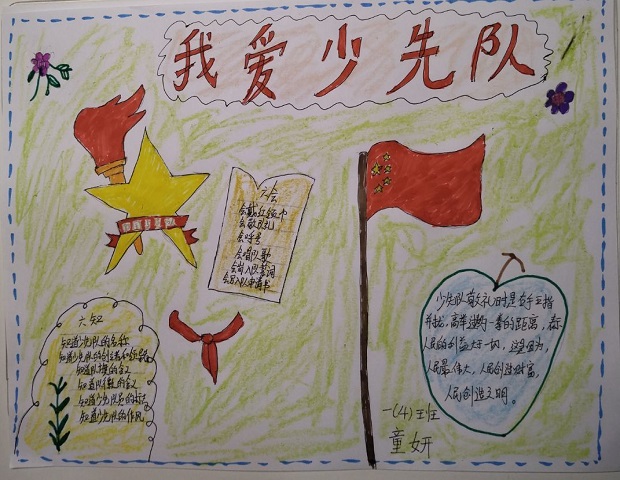 我爱少先队
六会
会戴红领巾
会敬队礼
会呼号
会唱队歌
会背入队誓词
会写入队申请书
六知
知道少先队的名称
知道少先队的创立者和领导者
知道队旗的含义
知道队徽的含义
知道少先队员的标志
知道少先队的作风
少先队敬礼时是右手五指
并拢,高举过头一拳的距离,表示
人民的利益大于一切,这是因为,
人民最伟大,人民创造财富,
人民创造文明。
一(4)班
童妍